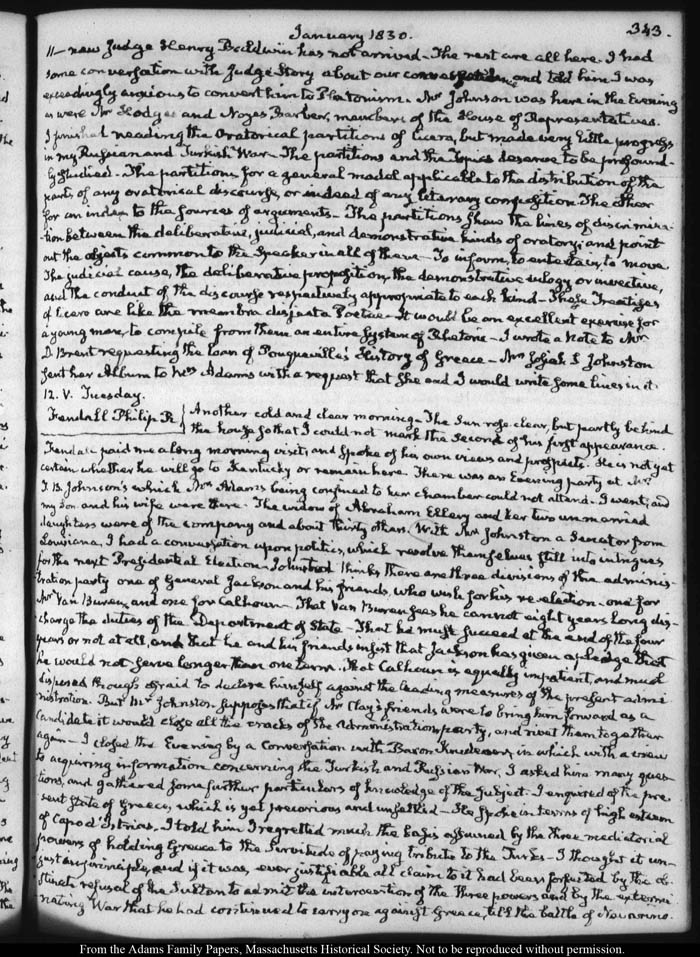 January 1830.
343.
11 — new Judge Henry Baldwin has not arrived. The rest are all here. I had
some conversation with Judge Story about our conversation and told him I was
exceedingly anxious to convert him to Platonism. Mr Johnson was here in the Evening
as were Mr Hodges and Noyes Barber, members of the House of Representatives.
I finished reading the Oratorical partitions of Cicero, but made very little progress
in my Russian and Turkish War. The partitions and the Topics deserve to be profound-
ly studied. The partitions for a general model applicable to the distribution of the
parts of any oratorical discourse, or indeed of any literary composition. The other
for an index to the sources of arguments. The partitions show the lines of discrimina-
tion between the deliberative, judicial, and demonstrative kinds of oratory; and point
out the objects common to the Speaker in all of these. To inform, to entertain, to move
The judicial cause, the deliberative proposition, the demonstrative eulogy or invective,
and the conduct of the discourse respectively appropriate to each kind. These Treatises
of Cicero are like the membra disjecta Poetae. It would be an excellent exercise for
a young man, to compile from them an entire System of Rhetoric. I wrote a Note to Mr
D. Brent requesting the loan of Pouqueville's History of Greece. Mrs Josiah S Johnston
sent her Album to Mrs Adams with a request that she and I would write some lines in it.
12. V. Tuesday.
Kendall Philip R.
Another cold and clear morning. The Sun rose clear, but partly behind
the house so that I could not mark the second of his first appearance.
Kendall paid me a long morning visit, and spoke of his own views and prospects. He is not yet
certain whether he will go to Kentucky or remain here. There was an Evening party at Mr
J. S. Johnston's which Mrs Adams being confined to her chamber could not attend. I went; and
my Son and his wife were there. The widow of Abraham Ellery and her two unmarried
daughters were of the company and about thirty others. With Mr Johnston a Senator from
Louisiana, I had a conversation upon politics, which resolve themselves still into intrigues
for the next Presidential Election. Johnston thinks there are three divisions of the adminis-
tration party one of General Jackson and his friends, who wish for his re-election. one for
Mr Van Buren, and one for Calhoun. That Van Buren sees he cannot eight years long dis-
charge the duties of the Department of State. That he must succeed at the end of the four
years or not at all, and that he and his friends insist that Jackson has given a pledge that
he would not serve longer than one term. That Calhoun is equally impatient, and much
disposed though afraid to declare himself against the leading measures of the present admi-
nistration. But Mr Johnston supposes that if Mr Clay's friends were to bring him forward as a
Candidate it would close all the cracks of the Administration party, and rivet them together
again. I closed the Evening by a Conversation with Baron Krudener, in which with a view
to acquiring information concerning the Turkish and Russian War, I asked him many ques-
tions, and gathered some further particulars of knowledge of the subject. I enquired of the pre-
sent state of Greece, which is yet precarious and unsettled. He spoke in terms of high esteem
of Capo d'Istrias. I told him I regretted much the basis assumed by the three mediatorial
powers of holding Greece to the Servitude of paying tribute to the Turks. I thought it un-
just in principle, and if it was ever justifiable all claim to it had been forfeited by the ob-
stinate refusal of the Sultan to admit the intervention of the Three powers and by the extermi-
nating War that he had continued to carry on against Greece, till the battle of Navarino.
From the Adams Family Papers, Massachusetts Historical Society. Not to be reproduced without permission.